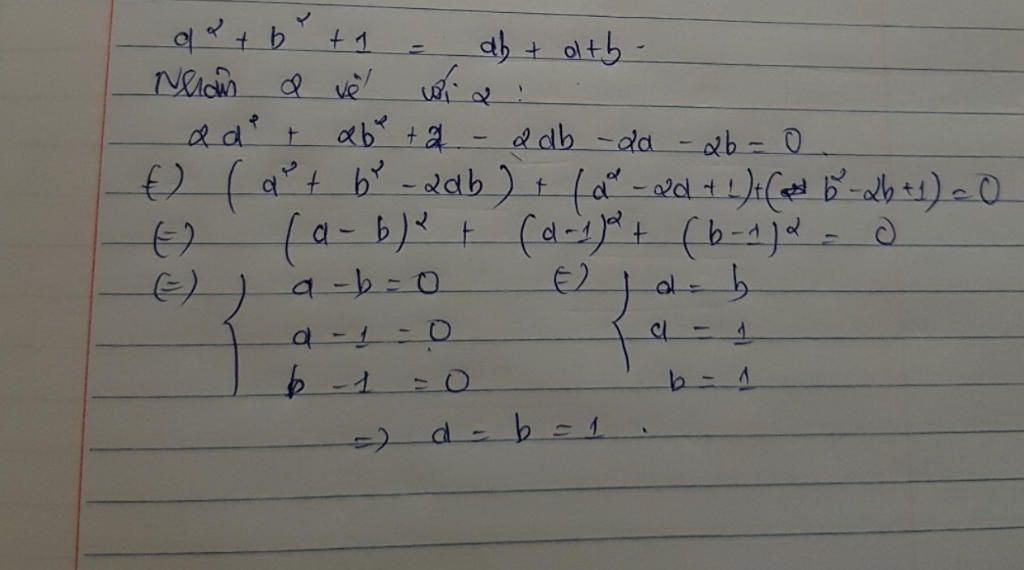 a² + b² + 1 = ab + a + b.
Nhân 2 vế với 2 :
2a² + 2b² + 2 - 2ab - 2a - 2b = 0.
(=) (a² + b² - 2ab) + (a² - 2a + 1) + (b² - 2b + 1) = 0
(=) (a - b)² + (a - 1)² + (b - 1)² = 0
(=) { a - b = 0 (=) { a = b
a - 1 = 0 a = 1
b - 1 = 0 b = 1
=) a = b = 1.